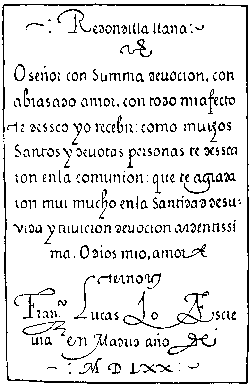 Redondilla llana:
O señor con summa devocion, con
abrasado amor, con todo mi afecto
te desseo yo recebir: como muchos
santos y devotas personas te dessea
ron en la comunion: que te agrada
ron mui mucho en la santidad de su
vida y tuvieron devocion ardentissi
ma. O dios mio, amor
eterno
Fran.co Lucas lo escre
via en Madrid año de
M D LXX